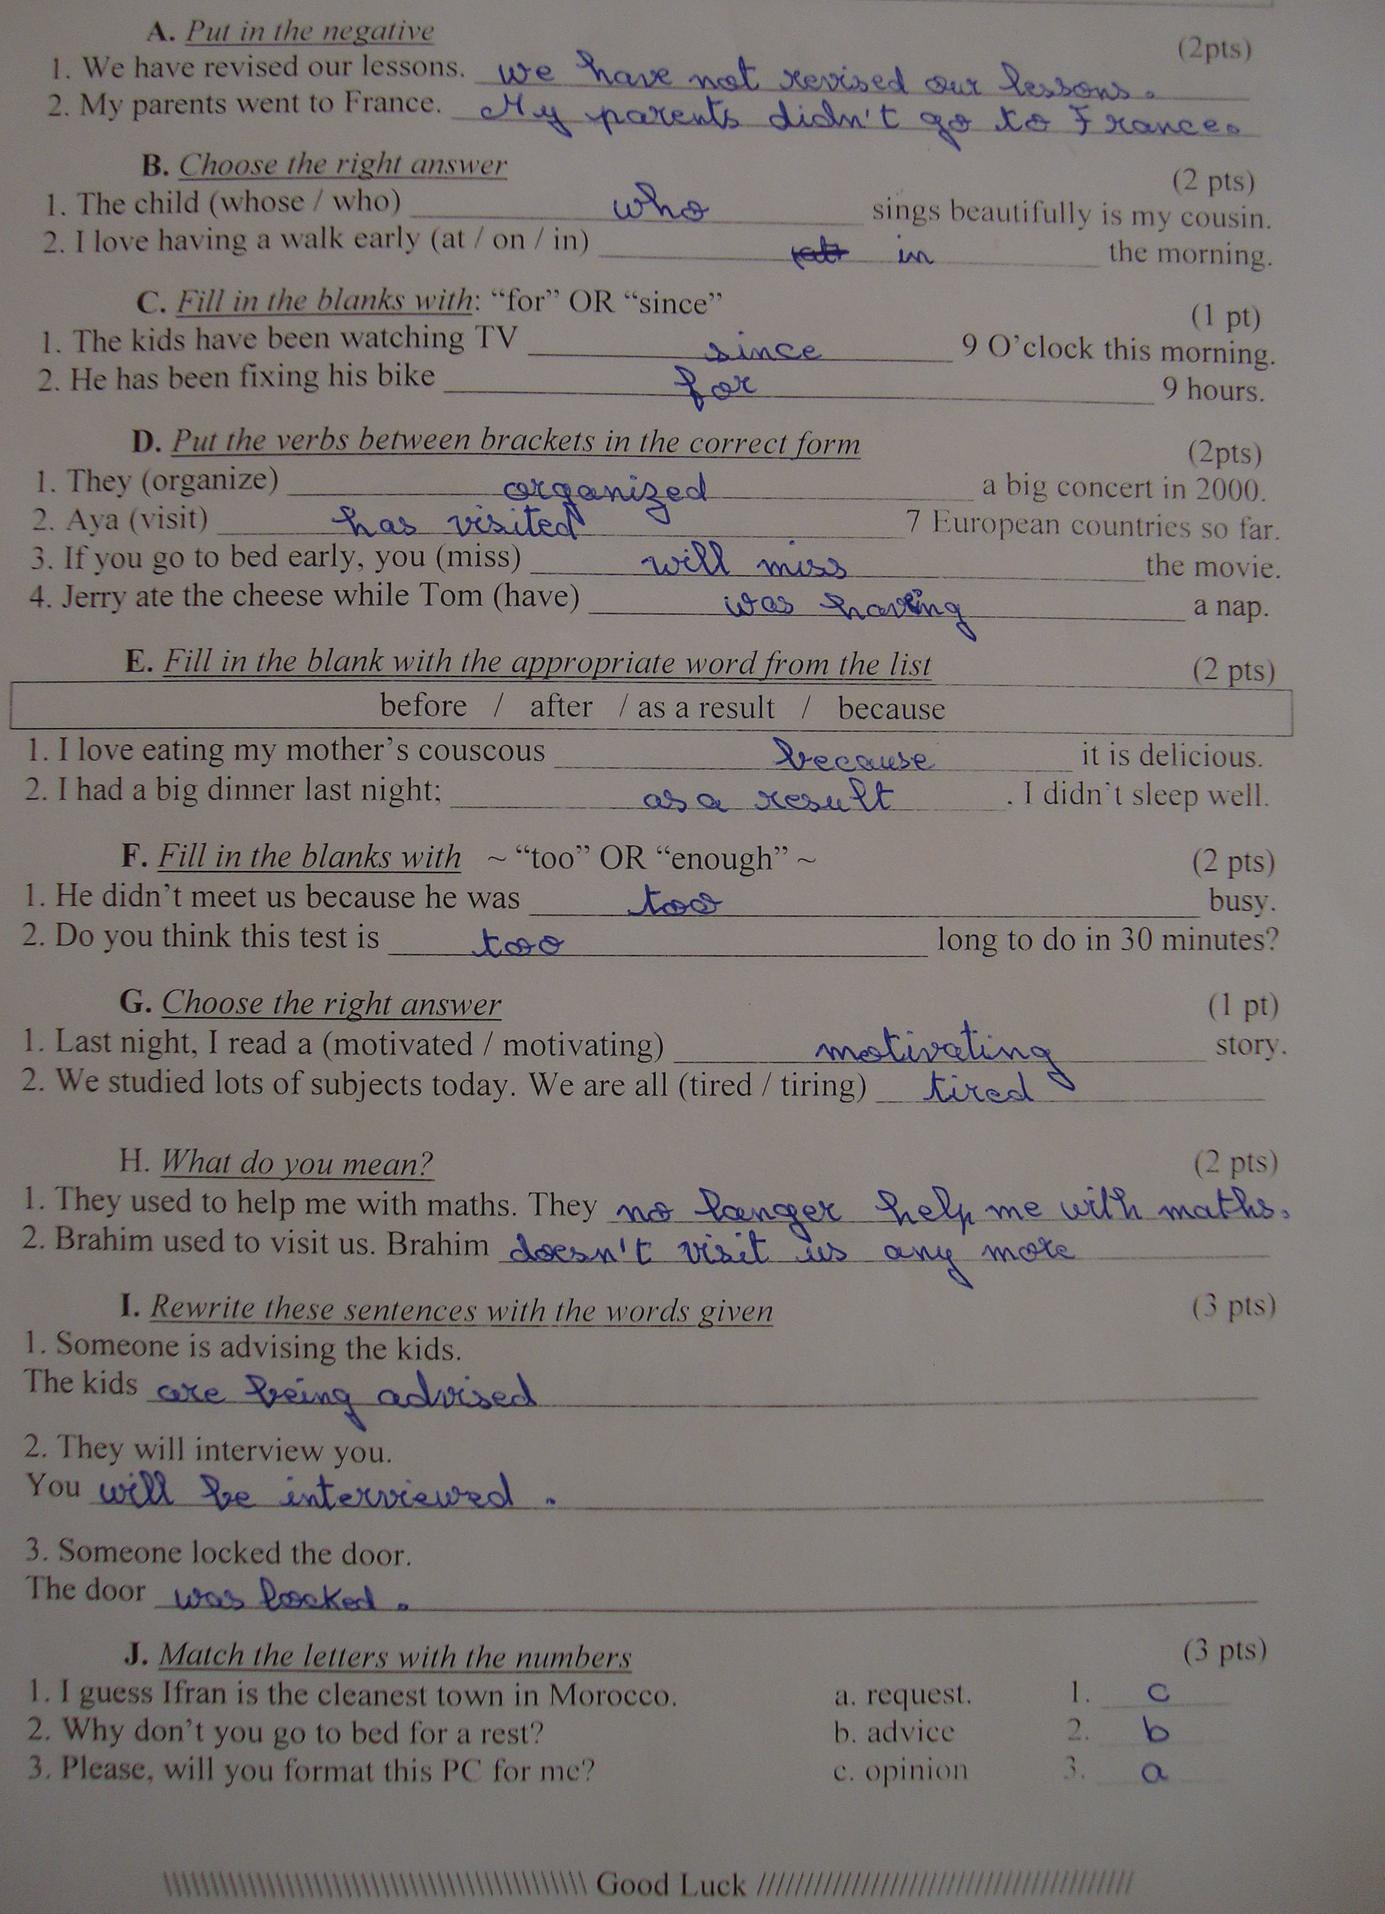 A. Put in the negative (2pts)
1. We have revised our lessons. we have not revised our lessons.
2. My parents went to France. My parents didn't go to France.
B. Choose the right answer (2 pts)
1. The child (whose / who) who sings beautifully is my cousin.
2. I love having a walk early (at / on / in) in the morning.
C. Fill in the blanks with: “for” OR “since” (1 pt)
1. The kids have been watching TV since 9 O’clock this morning.
2. He has been fixing his bike for 9 hours.
D. Put the verbs between brackets in the correct form (2pts)
1. They (organize) organized a big concert in 2000.
2. Aya (visit) has visited 7 European countries so far.
3. If you go to bed early, you (miss) will miss the movie.
4. Jerry ate the cheese while Tom (have) was having a nap.
E. Fill in the blank with the appropriate word from the list (2 pts)
before / after / as a result / because
1. I love eating my mother’s couscous because it is delicious.
2. I had a big dinner last night; as a result . I didn’t sleep well.
F. Fill in the blanks with ~ “too” OR “enough” ~ (2 pts)
1. He didn’t meet us because he was too busy.
2. Do you think this test is too long to do in 30 minutes?
G. Choose the right answer (1 pt)
1. Last night, I read a (motivated / motivating) motivating story.
2. We studied lots of subjects today. We are all (tired / tiring) tired
H. What do you mean? (2 pts)
1. They used to help me with maths. They no longer help me with maths.
2. Brahim used to visit us. Brahim doesn't visit us any more
I. Rewrite these sentences with the words given (3 pts)
1. Someone is advising the kids.
The kids are being advised
2. They will interview you.
You will be interviewed.
3. Someone locked the door.
The door was locked.
J. Match the letters with the numbers (3 pts)
1. I guess Ifran is the cleanest town in Morocco. a. request. 1. c
2. Why don’t you go to bed for a rest? b. advice 2. b
3. Please, will you format this PC for me? c. opinion 3. a
Good Luck